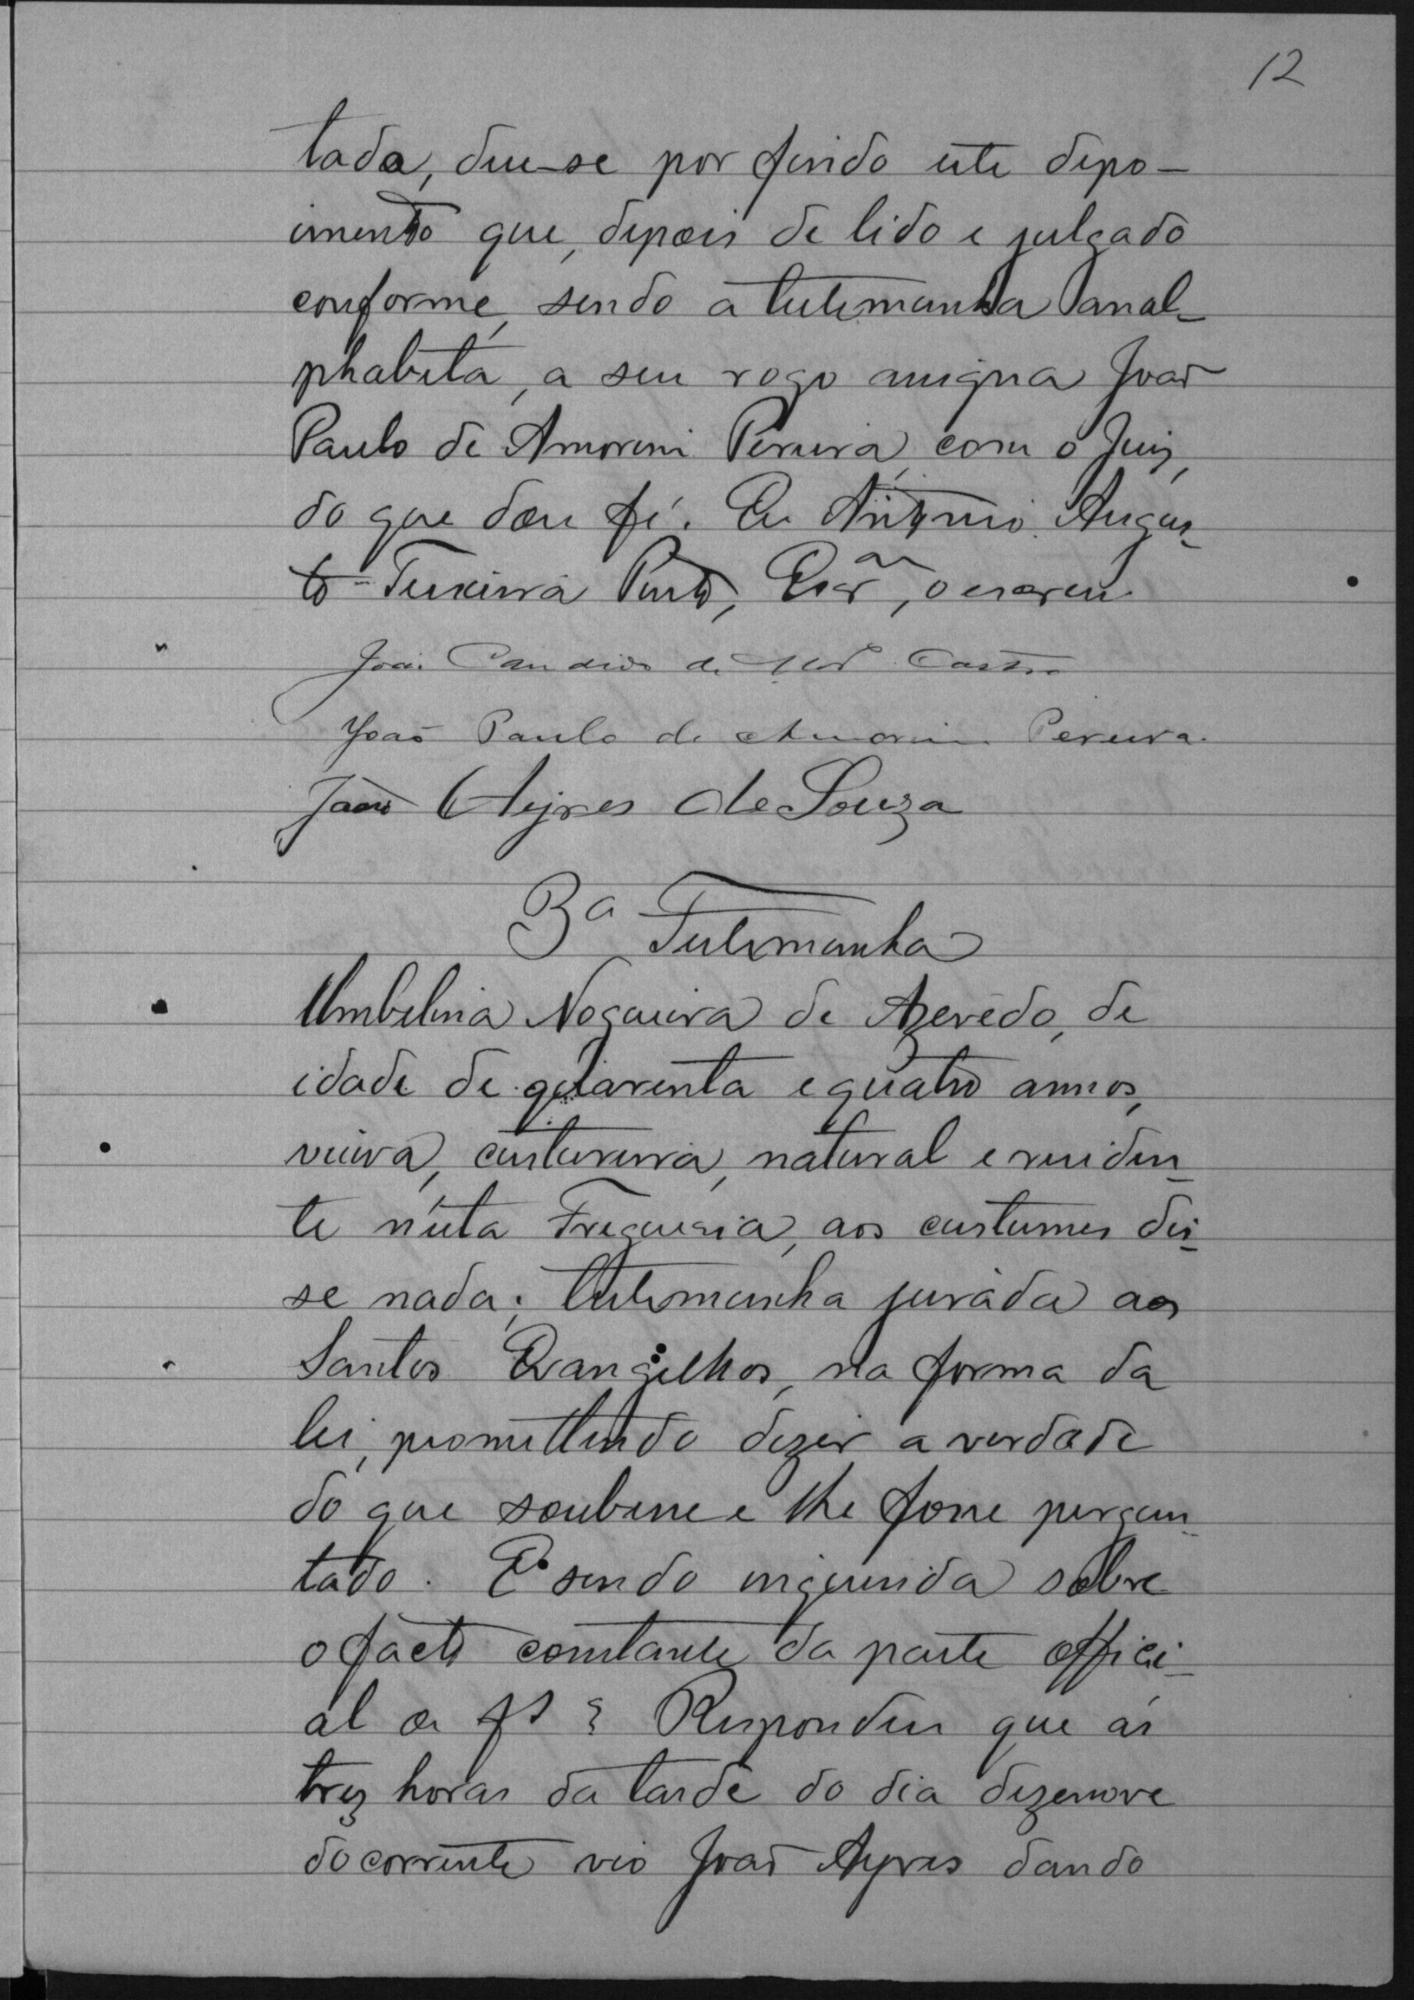 12
tada, deu-se por findo este depo-
imento que, depois de lido e julgado
conforme, sendo a testemunha anal-
phabeta, a seu rogo assigna João
Paulo de Amorim Pereira, com o Juiz,
do que dou fé. Eu Antonio Augus-
to Teixeira Pinto, Escr.am, o escrevi.
João Candido de Castro
João Paulo de Amorim Pereira.
João Ayres de Souza
3a Testemunha
Umbelina Nogueira de Azevedo, de
idade de quarenta e quatro annos,
viuva, custureira, natural e residen-
te n'esta Freguesia, aos custumes dis-
se nada; testemunha jurada aos
Santos Evangelhos, na forma da
lei, promettendo dizer a verdade
do que soubesse e lhe fosse pergun-
tado. E sendo inquerida sobre
o facto constante da parte offici-
al a fs ? Respondeu que as
trez horas da tarde do dia dezenove
do corrente vio João Ayres dando